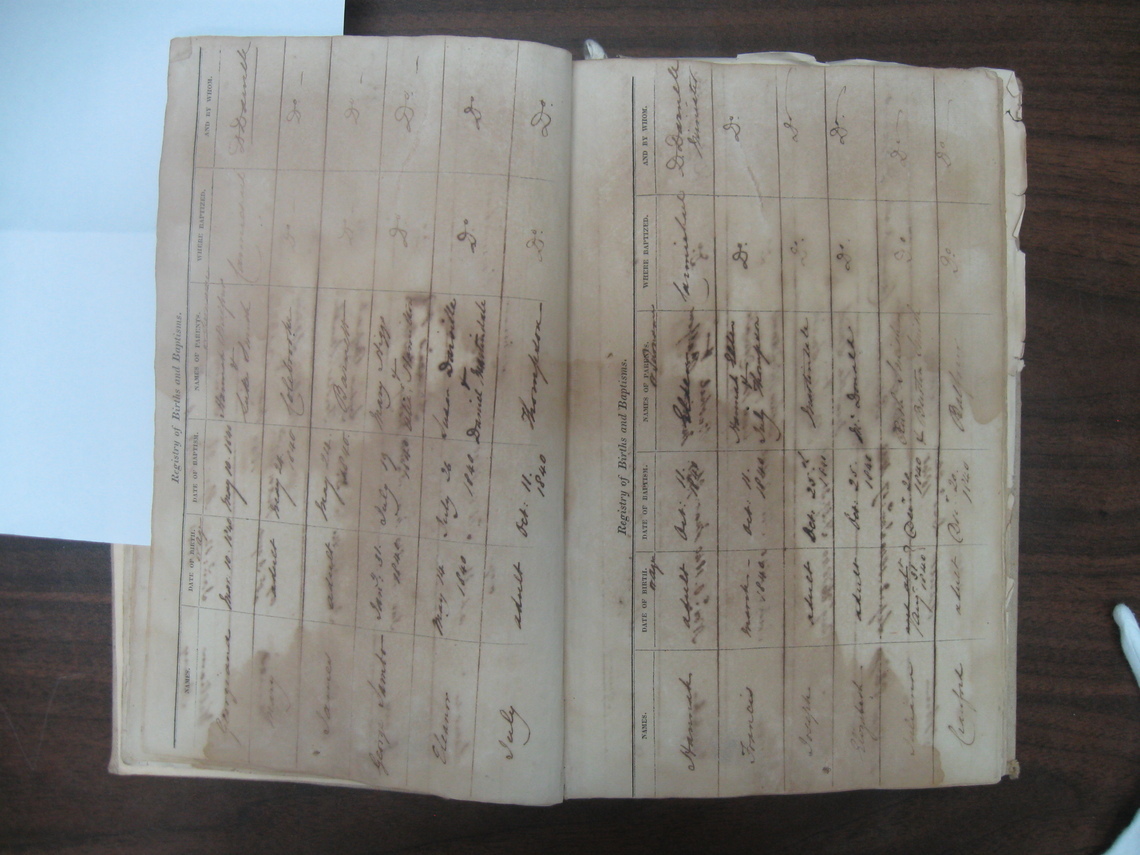 Registry of Births and Baptisms.
NAMES. DATE OF BIRTH. DATE OF BAPTISM. NAMES OF PARENTS. WHERE BAPTIZED. AND BY WHOM.
or Age or Surname
Georgiana Mar. 10. 1840 May 10. 1840 Hannah
&
Luke Smith Carmichael D Darnelle
Mary adult May 24
1840 Colebrooke Do Do
James adult May 24
1840 Barnett Do Do
George Sambo Jany. 31. July 19 Mary Higgs
1840 1840 & Hamilton Do Do
Eleanor May 14 July 26 Susan Darville
1840 1840 &
Daniel Martindale Do Do
July adult Oct: 11.
1840 Thompson Do Do
Registry of Births and Baptisms.
NAMES. DATE OF BIRTH. DATE OF BAPTISM. NAMES OF PARENTS. WHERE BAPTIZED. AND BY WHOM.
or Age or Surname
Hannah adult Oct: 11.
1840 Elden Carmichael D Darnelle
Minister
Francis March Oct: 11. Hannah Elden
1840 1840 &
July Thompson Do Do
Joseph adult Oct. 25th
1840 Martindale Do Do
Elizabeth adult Oct: 25.
1840 Mc Donald Do Do
Juliana Augt 31
1840 Decr 20
1840 Ruth
& Smith Do Do
Crawford adult Decr 20.
1840 Balfour Do Do